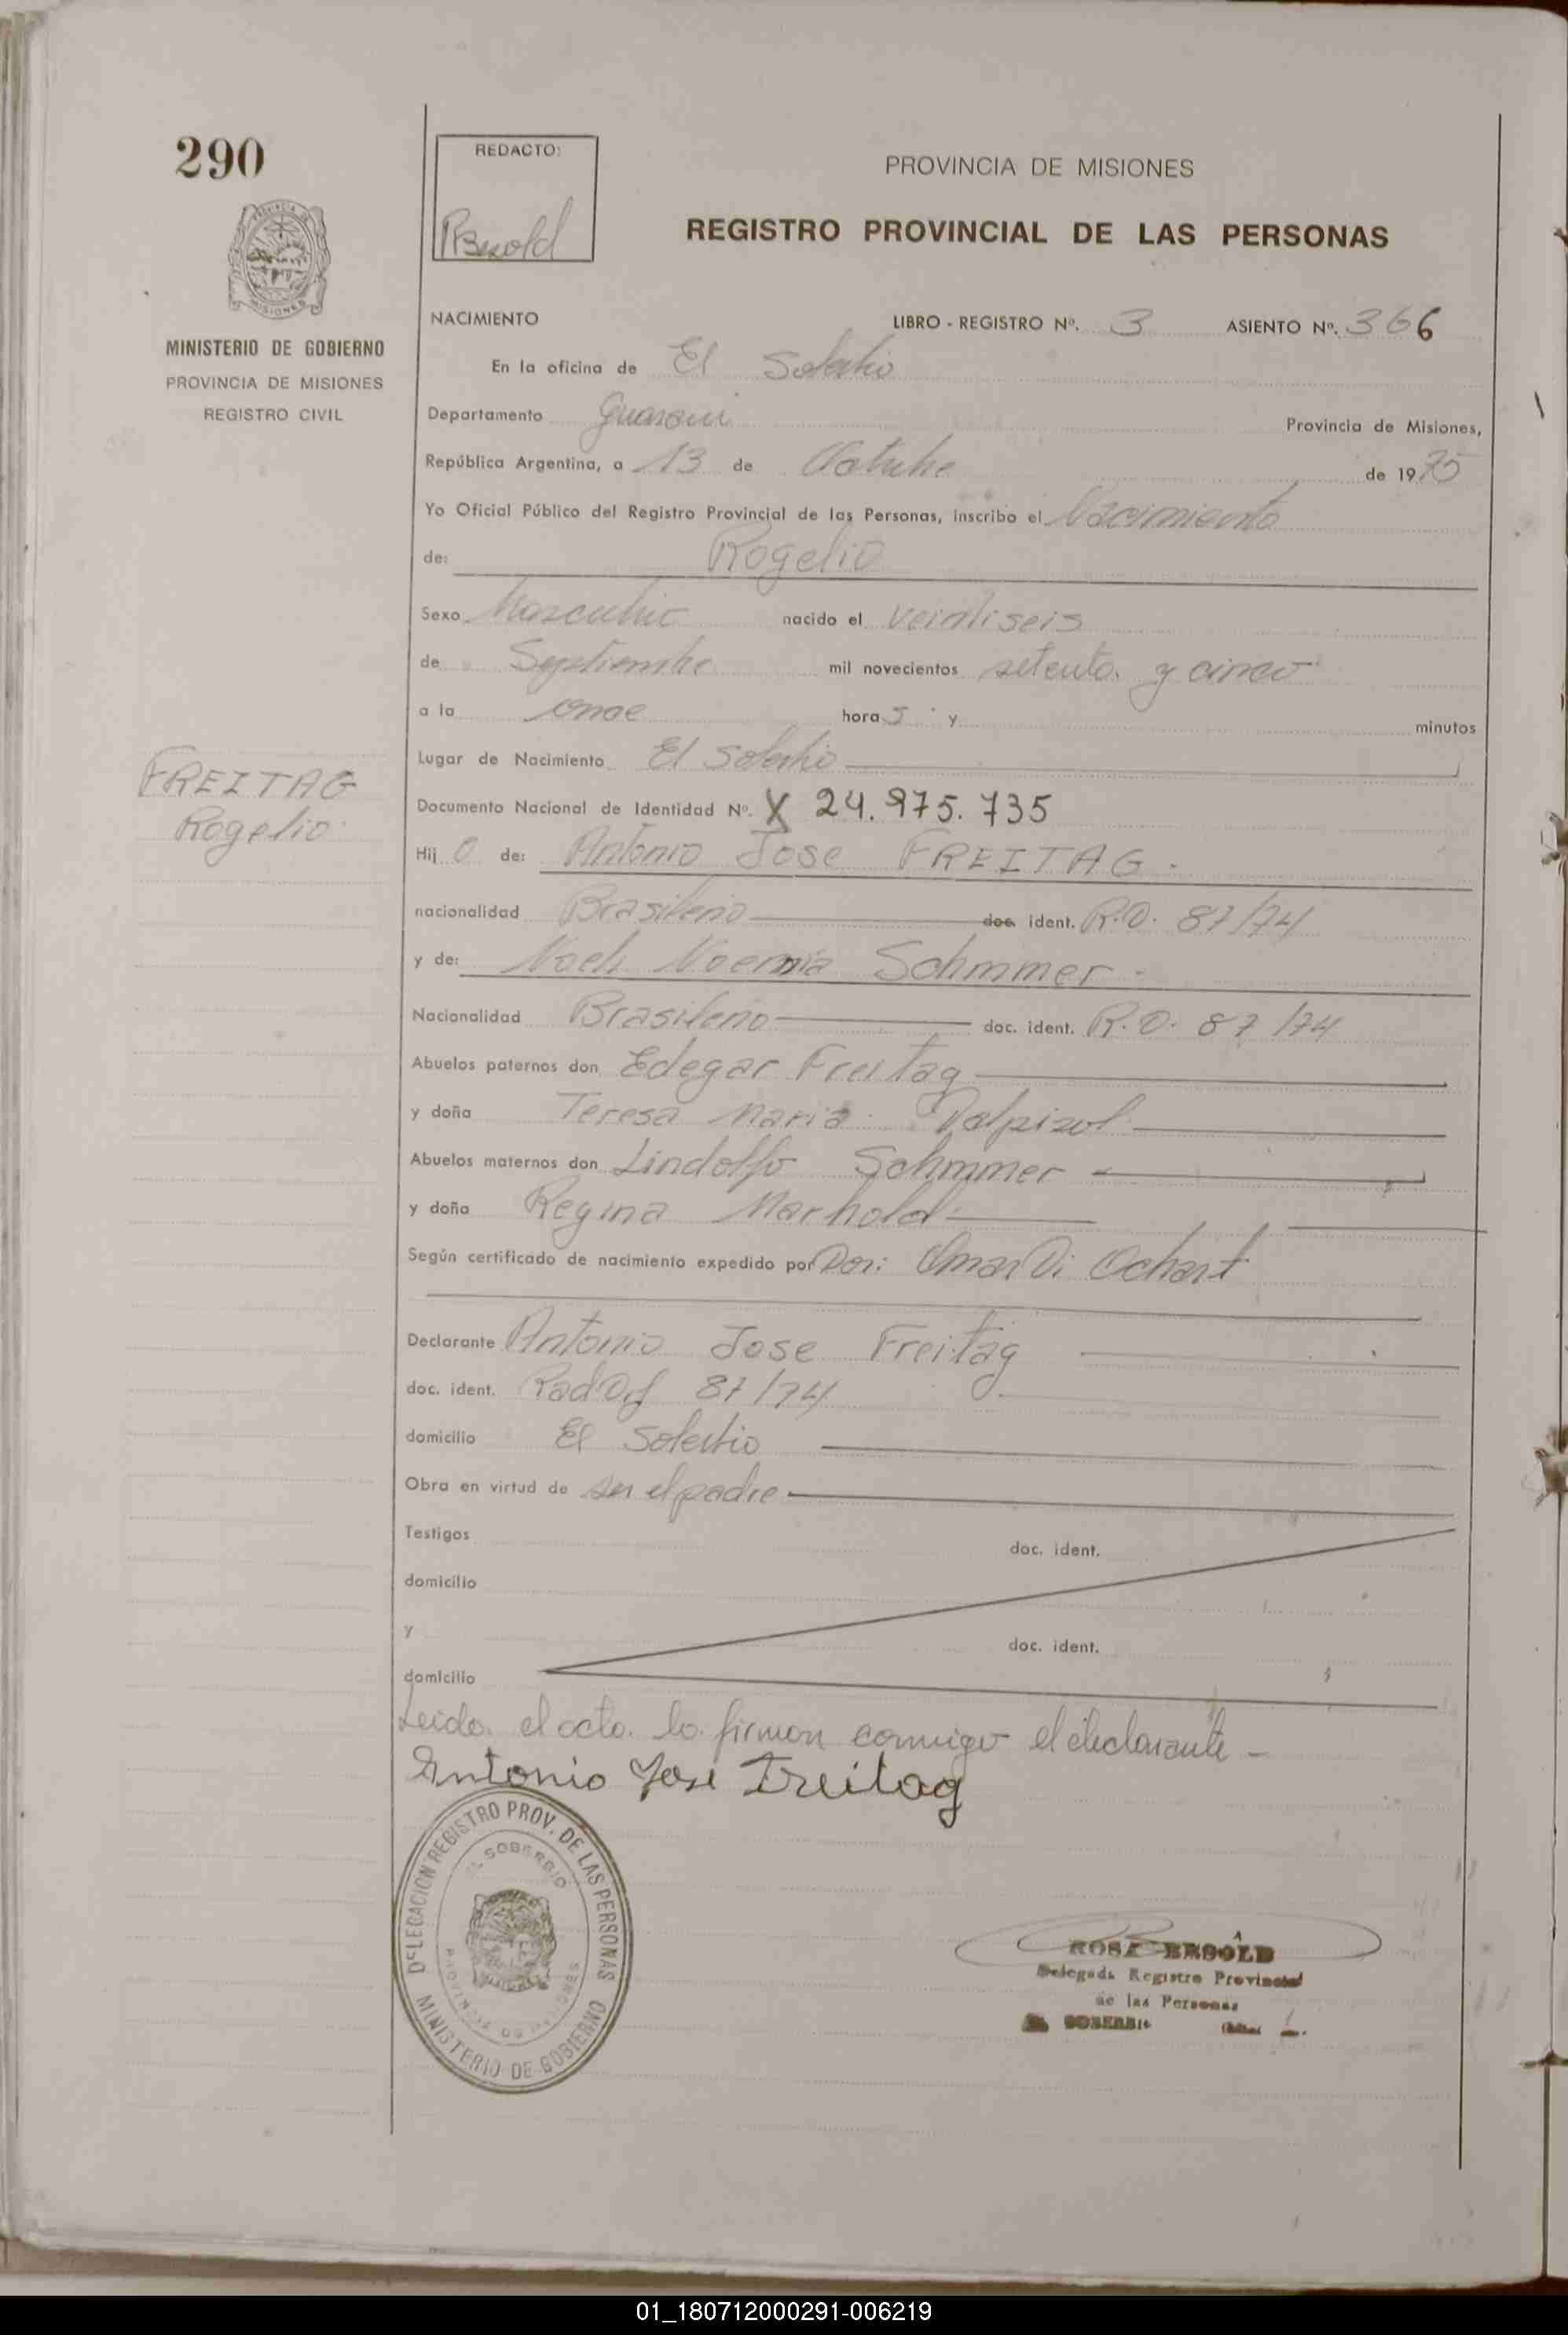 290
REDACTO:
RBesold
PROVINCIA DE MISIONES
REGISTRO PROVINCIAL DE LAS PERSONAS
MISIONES
MINISTERIO DE GOBIERNO
PROVINCIA DE MISIONES
REGISTRO CIVIL
NACIMIENTO
LIBRO - REGISTRO Nº. 3 ASIENTO Nº. 366
En la oficina de El Soberbio
Departamento Guarani Provincia de Misiones,
República Argentina, a 13 de Octubre de 1975
Yo Oficial Público del Registro Provincial de las Personas, inscribo el Nacimiento
de: Rogelio
Sexo Masculino nacido el veintiseis
de Septiembre mil novecientos setenta y cinco
a la once hora s y minutos
Lugar de Nacimiento El Soberbio
FREITAG
Rogelio
Documento Nacional de Identidad Nº. X 24.975.735
Hij o de: Antonio Jose FREITAG.
nacionalidad Brasileño doc. ident. R.O. 87/74
y de: Noemia Schmmer.
Nacionalidad Brasileño doc. ident. R.O. 87/74
Abuelos paternos don Edegar Freitag
y doña Teresa Maria Dalpizol
Abuelos maternos don Lindolfo Schmmer
y doña Regina Marhold
Según certificado de nacimiento expedido por Dor: Omar Di Ochart
Declarante Antonio Jose Freitag
doc. ident. 87/74
domicilio El Soberbio
Obra en virtud de ser el padre
Testigos doc. ident.
domicilio
y doc. ident.
domicilio
Leida el acta lo firman conmigo el declarante -
Antonio Jose Freitag
DELEGACION REGISTRO PROV. DE LAS PERSONAS
EL SOBERBIO
PROVINCIA DE MISIONES
MINISTERIO DE GOBIERNO
ROSA BESOLD
Delegada Registro Provincial
de las Personas
EL SOBERBIO
01_180712000291-006219